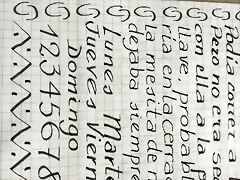 Podía correr a
pezo no era sec
con ella a la
llave, probabl
ría en la cerra
la mesita de n
dejaba siempre
Lunes Marte
Jueves Viern
Domingo
12345678